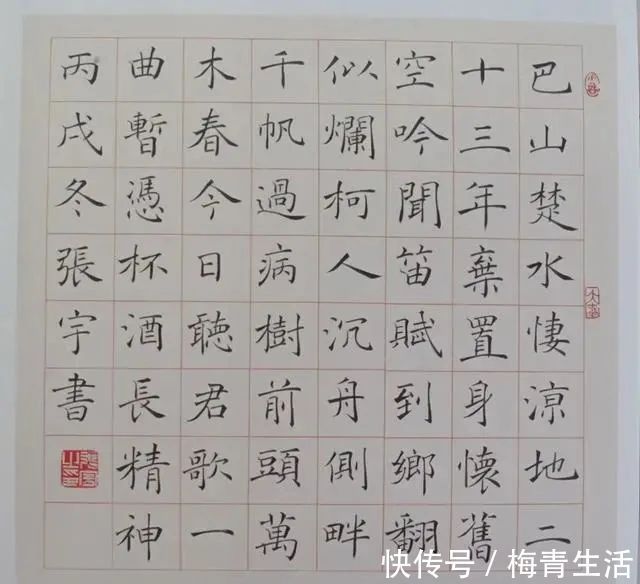 巴山楚水悽涼地二
十三年棄置身懷舊
空吟聞笛賦到鄉翻
似爛柯人沉舟側畔
千帆過病樹前頭萬
木春今日聽君歌一
曲暫憑杯酒長精神
丙戌冬張宇書
快传号 / 梅青生活